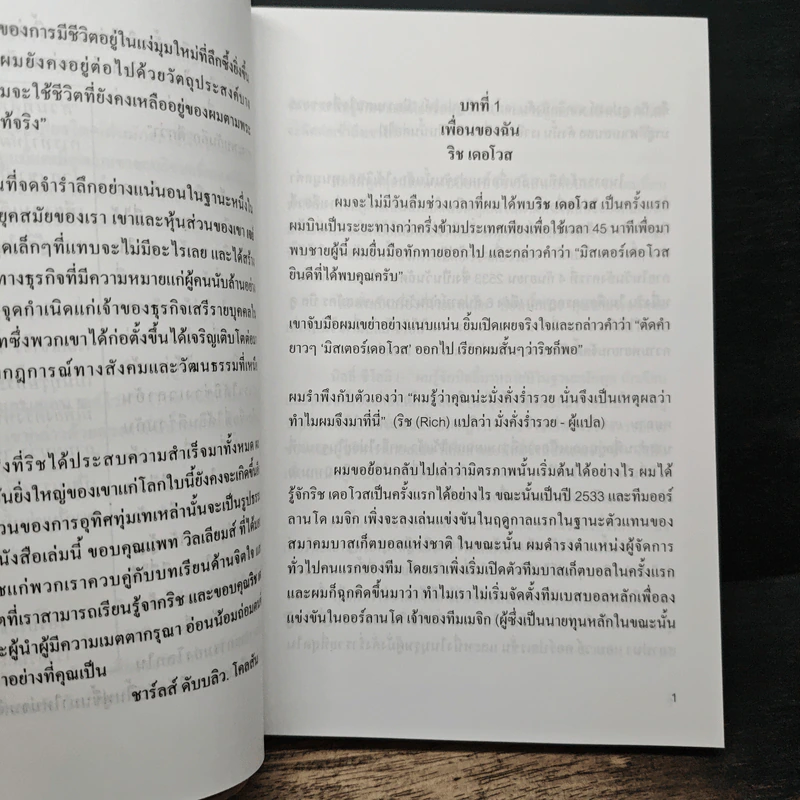 ของการมีชีวิตอยู่ในแง่มุมใหม่ที่ลึกซึ้งยิ่งขึ้น
ผมยังคงอยู่ต่อไปด้วยวัตถุประสงค์บาง
มจะใช้ชีวิตที่ยังคงเหลืออยู่ของผมตามพระ
ท้จริง”
นที่จดจำรำลึกอย่างแน่นอนในฐานะหนึ่งใน
ยุคสมัยของเรา เขาและหุ้นส่วนของเขา
ดเล็กๆที่แทบจะไม่มีอะไรเลย และได้สร้าง
ทางธุรกิจที่มีความหมายแก่ผู้คนนับล้านอย่าง
จุดกำเนิดแก่เจ้าของธุรกิจเสรีรายบุคคลใน
ทซึ่งพวกเขาได้ก่อตั้งขึ้นได้เจริญเติบโตต่อมา
กฎการณ์ทางสังคมและวัฒนธรรมที่เหนือ
งที่ริชได้ประสบความสำเร็จมาทั้งหมด
ันยิ่งใหญ่ของเขาแก่โลกใบนี้ยังคงจะเกิดขึ้น
วนของการอุทิศทุ่มเทเหล่านั้นจะเป็นรูปธรรม
นังสือเล่มนี้ ขอบคุณแพท วิลเลียมส์ ที่ได้
ชแก่พวกเราควบคู่กับบทเรียนด้านจิตใจ
ตที่เราสามารถเรียนรู้จากริช และขอบคุณริช
ะผู้นำผู้มีความเมตตากรุณา อ่อนน้อมถ่อมตน
าอย่างที่คุณเป็น
ชาร์ลส์ ดับบลิว. โคลสัน
บทที่ 1
เพื่อนของฉัน
ริช เดอโวส
ผมจะไม่มีวันลืมช่วงเวลาที่ผมได้พบริช เดอโวส เป็นครั้งแรก
ผมบินเป็นระยะทางกว่าครึ่งข้ามประเทศเพียงเพื่อใช้เวลา 45 นาทีเพื่อมา
พบชายผู้นี้ ผมยื่นมือทักทายออกไป และกล่าวคำว่า “มิสเตอร์เดอโวส
ยินดีที่ได้พบคุณครับ”
เขาจับมือผมเขย่าอย่างแนบแน่น ยิ้มเปิดเผยจริงใจและกล่าวคำว่า “ตัดคำ
ยาวๆ ‘มิสเตอร์เดอโวส’ ออกไป เรียกผมสั้นๆว่าริชก็พอ”
ผมรำพึงกับตัวเองว่า “ผมรู้ว่าคุณน่ะมั่งคั่งร่ำรวย นั่นจึงเป็นเหตุผลว่า
ทำไมผมจึงมาที่นี่” (ริช (Rich) แปลว่า มั่งคั่งร่ำรวย - ผู้แปล)
ผมขอย้อนกลับไปเล่าว่ามิตรภาพนั้นเริ่มต้นได้อย่างไร ผมได้
รู้จักริช เดอโวสเป็นครั้งแรกได้อย่างไร ขณะนั้นเป็นปี 2533 และทีมออร์
ลานโด เมจิก เพิ่งจะลงเล่นแข่งขันในฤดูกาลแรกในฐานะตัวแทนของ
สมาคมบาสเก็ตบอลแห่งชาติ ในขณะนั้น ผมดำรงตำแหน่งผู้จัดการ
ทั่วไปคนแรกของทีม โดยเราเพิ่งเริ่มเปิดตัวทีมบาสเก็ตบอลในครั้งแรก
และผมก็ฉุกคิดขึ้นมาว่า ทำไมเราไม่เริ่มจัดตั้งทีมเบสบอลหลักเพื่อลง
แข่งขันในออร์ลานโด เจ้าของทีมเมจิก (ผู้ซึ่งเป็นนายทุนหลักในขณะนั้น
1